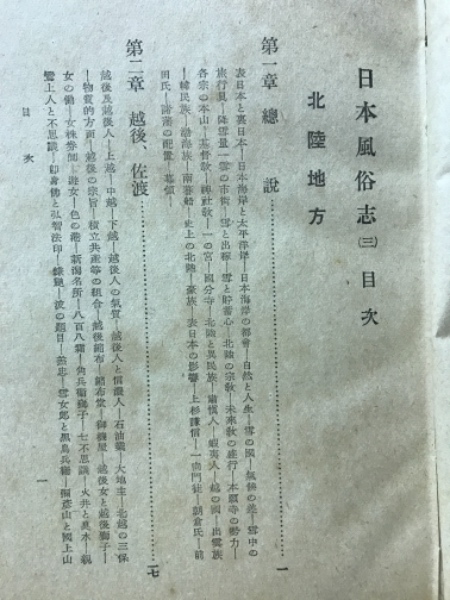 日本風俗志(三)目次
北陸地方
第一章 總說……一
表日本と裏日本―日本海岸と太平洋岸―日本海岸の都會―自然と人生―雪の國―氣候の差―雪中の
旅行見―降雪量―雪の市街―雪と出稼―雪と貯蓄心―北陸の宗教―未來教の盛行―本願寺の勢力―
各宗の本山―基督教―神社教―一の宮―國分寺―北陸と異民族―肅愼人―蝦夷人―越の國―出雲族
―韓民族―渤海族―南蠻船―史上の北陸―豪族―表日本の影響―上杉謙信―一向門徒―朝倉氏―前
田氏―諸藩の配置―幕領―
第二章 越後、佐渡……七
越後及越後人―上越、中越、下越―越後人の氣質―越後人と信濃人―石油業―大地主―北越の三保
―物質的方面―越後の宗旨―積立共產等の組合―越後縮布―縮布堂―御機屋―越後女と越後獅子―
女の働―女殊藝師―遊女―色の港―新潟名所―八百八橋―角兵衞獅子―七不思議―火井と臭水―親
鸞上人と不思議―卽身佛と弘智法印―
目次
一